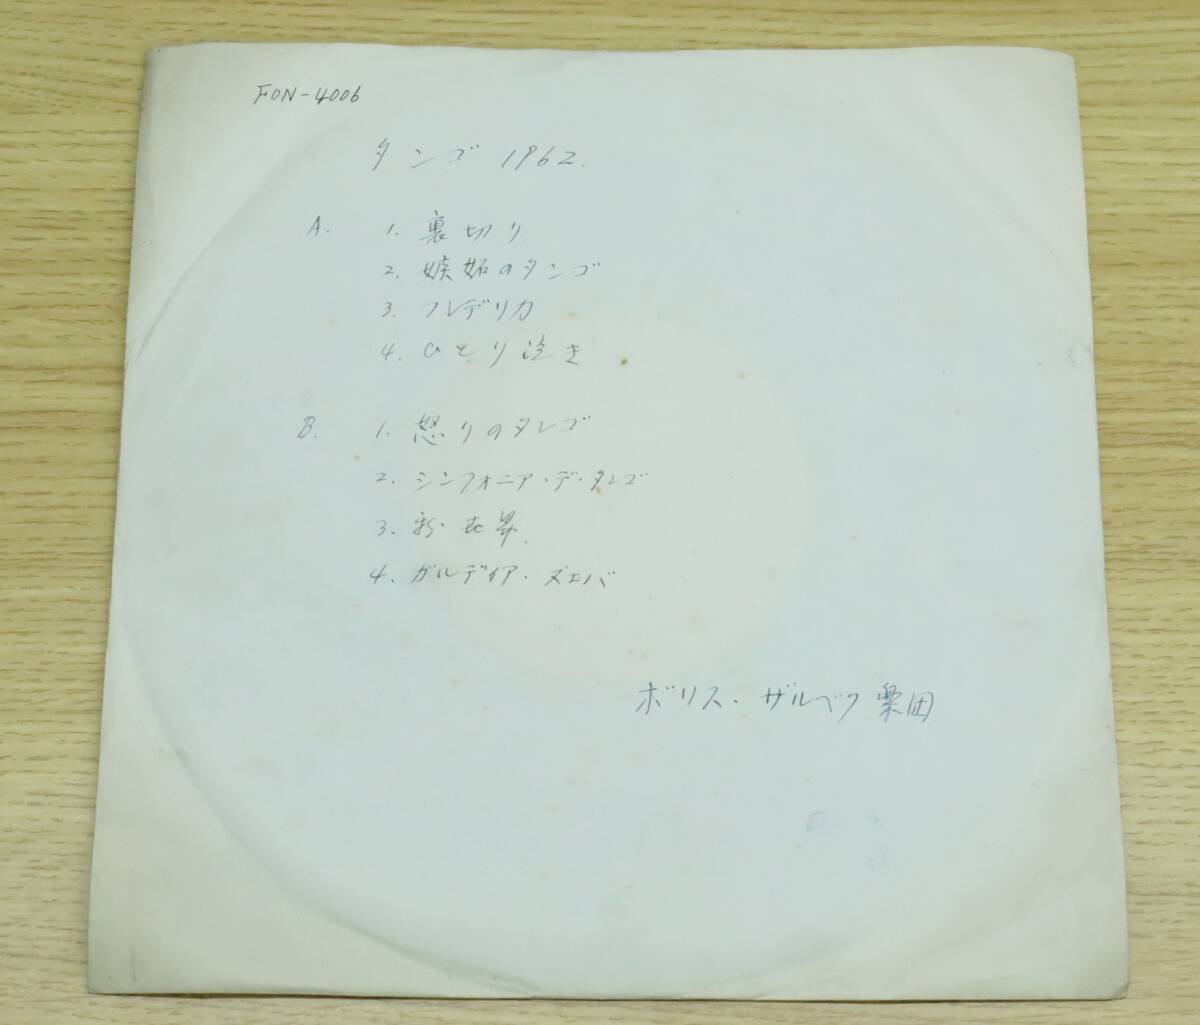 FON-4006
タンゴ 1962.
A. 1. 裏切り
2. 嫉妬のタンゴ
3. フレデリカ
4. ひとり泣き
B. 1. 怒りのタンゴ
2. シンフォニア・デ・タンゴ
3. 新世界
4. ガルディア・ヌエバ
ボリス・ザルベク楽団